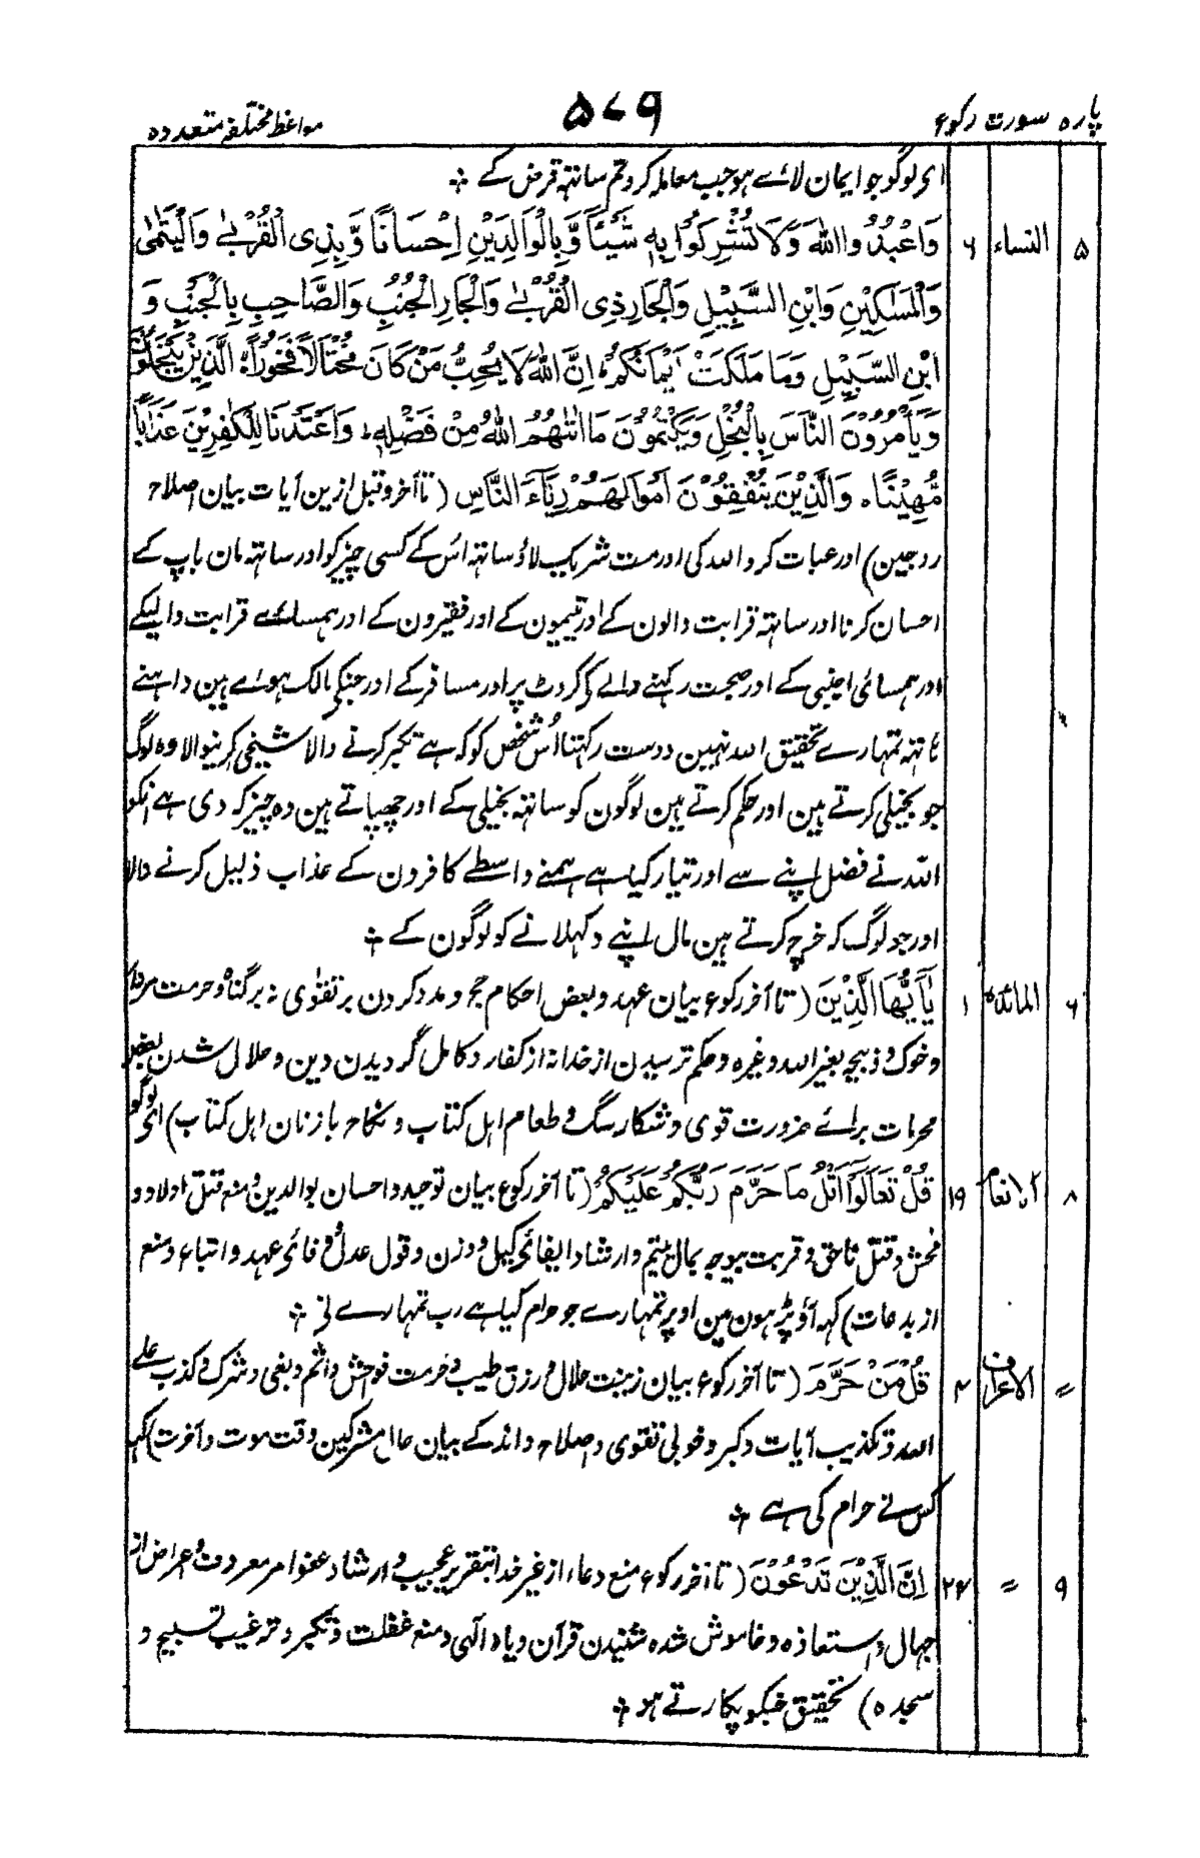 پاره سورت رکوع ۵۷۹ مواعظ مختلفہ متعددہ
ای لوگو جو ایمان لائے ہو جب معاملہ کرو تم ساتہہ قرض کے ؞
۵ النساء ۶ وَاعْبُدُوا اللهَ وَلَا تُشْرِكُوْا بِهٖ شَيْئًا وَّبِالْوَالِدَيْنِ اِحْسَانًا وَّبِذِى الْقُرْبٰى وَالْيَتٰمٰى
وَالْمَسٰكِيْنِ وَابْنِ السَّبِيْلِ وَالْجَارِ ذِى الْقُرْبٰى وَالْجَارِ الْجُنُبِ وَالصَّاحِبِ بِالْجَنْۢبِ وَ
ابْنِ السَّبِيْلِ وَمَا مَلَكَتْ اَيْمَانُكُمْ ؕ اِنَّ اللهَ لَا يُحِبُّ مَنْ كَانَ مُخْتَالًا فَخُوْرًا ۙ الَّذِيْنَ يَبْخَلُوْنَ
وَيَأْمُرُوْنَ النَّاسَ بِالْبُخْلِ وَيَكْتُمُوْنَ مَا اٰتٰهُمُ اللهُ مِنْ فَضْلِهٖ ؕ وَاَعْتَدْنَا لِلْكٰفِرِيْنَ عَذَابًا
مُّهِيْنًا ۚ وَالَّذِيْنَ يُنْفِقُوْنَ اَمْوَالَهُمْ رِئَآءَ النَّاسِ (تا آخر و قبل ازین آیات بیان اصلاح
زوجین) اور عبات کرو اللہ کی اور مت شریک لاؤ ساتہہ اس کے کسی چیز کو اور ساتہہ مان باپ کے
احسان کرنا اور ساتہہ قرابت والون کے اور یتیمون کے اور فقیرون کے اور ہمسائے قرابت والیکے
اور ہمسائی اجنبی کے اور صحبت رکہنے والے کی کروٹ پر اور مسافر کے اور جنکی مالک ہوے ہین داہنے
ہاتہہ تمہارے تحقیق اللہ نہین دوست رکہتا اُس شخص کو کہ ہے تکبر کرنے والا شیخی کرنیوالا وہ لوگ
جو بخیلی کرتے ہین اور حکم کرتے ہین لوگون کو ساتہہ بخیلی کے اور چہپاتے ہین وہ چیز کہ دی ہے انکو
اللہ نے فضل اپنے سے اور تیار کیا ہے ہمنے واسطے کافرون کے عذاب ذلیل کرنے والا
اور جو لوگ کہ خرچ کرتے ہین مال اپنے دکہلانے کو لوگون کے ؞
۶ المائدہ ۱ يٰٓاَيُّهَا الَّذِيْنَ (تا آخر رکوع بیان عہد و بعض احکام حج و مدد کردن بر تقوٰی نہ بر گناہ و حرمت مردار
و خوک و ذبیحہ بغیر اللہ وغیرہ و حکم ترسیدن از خدا نہ از کفار و کامل گردیدن دین و حلال شدن بعض
محرمات برائے ضرورت قوی و شکار سگ و طعام اہل کتاب و نکاح با زنان اہل کتاب) ای لوگو
۸ الانعام ۱۹ قُلْ تَعَالَوْا اَتْلُ مَا حَرَّمَ رَبُّكُمْ عَلَيْكُمْ (تا آخر رکوع بیان توحید و احسان بوالدین و منع قتل اولاد و
فحش و قتل ناحق و قربت بیوجہ بمال یتیم و ارشاد ایفائی کیل و وزن و قول عدل و وفائی عہد و اتباع و منع
از بدعات) کہہ آؤ پڑہون مین اوپر تمہارے جو حرام کیا ہے رب تمہارے نی ؞
= الاعراف ۴ قُلْ مَنْ حَرَّمَ (تا آخر رکوع بیان زینت حلال و رزق طیب و حرمت فواحش و اثم و بغی و شرک و کذب علے
اللہ و تکذیب آیات و کبر و خوبی تقوی و اصلاح و اندکے بیان حال مشرکین وقت موت و آخرت) کہہ
کس نے حرام کی ہے ؞
۹ = ۲۴ اِنَّ الَّذِيْنَ تَدْعُوْنَ (تا آخر رکوع منع دعاء از غیر خدا بتقریر عجیب و ارشاد عفو امر معروف و اعراض از
جہال و استعاذہ و خاموش شدہ شنیدن قرآن و یاد الٰہی و منع غفلت و تکبر و ترغیب تسبیح و
سجدہ) تحقیق جنکو پکارتے ہو ؞